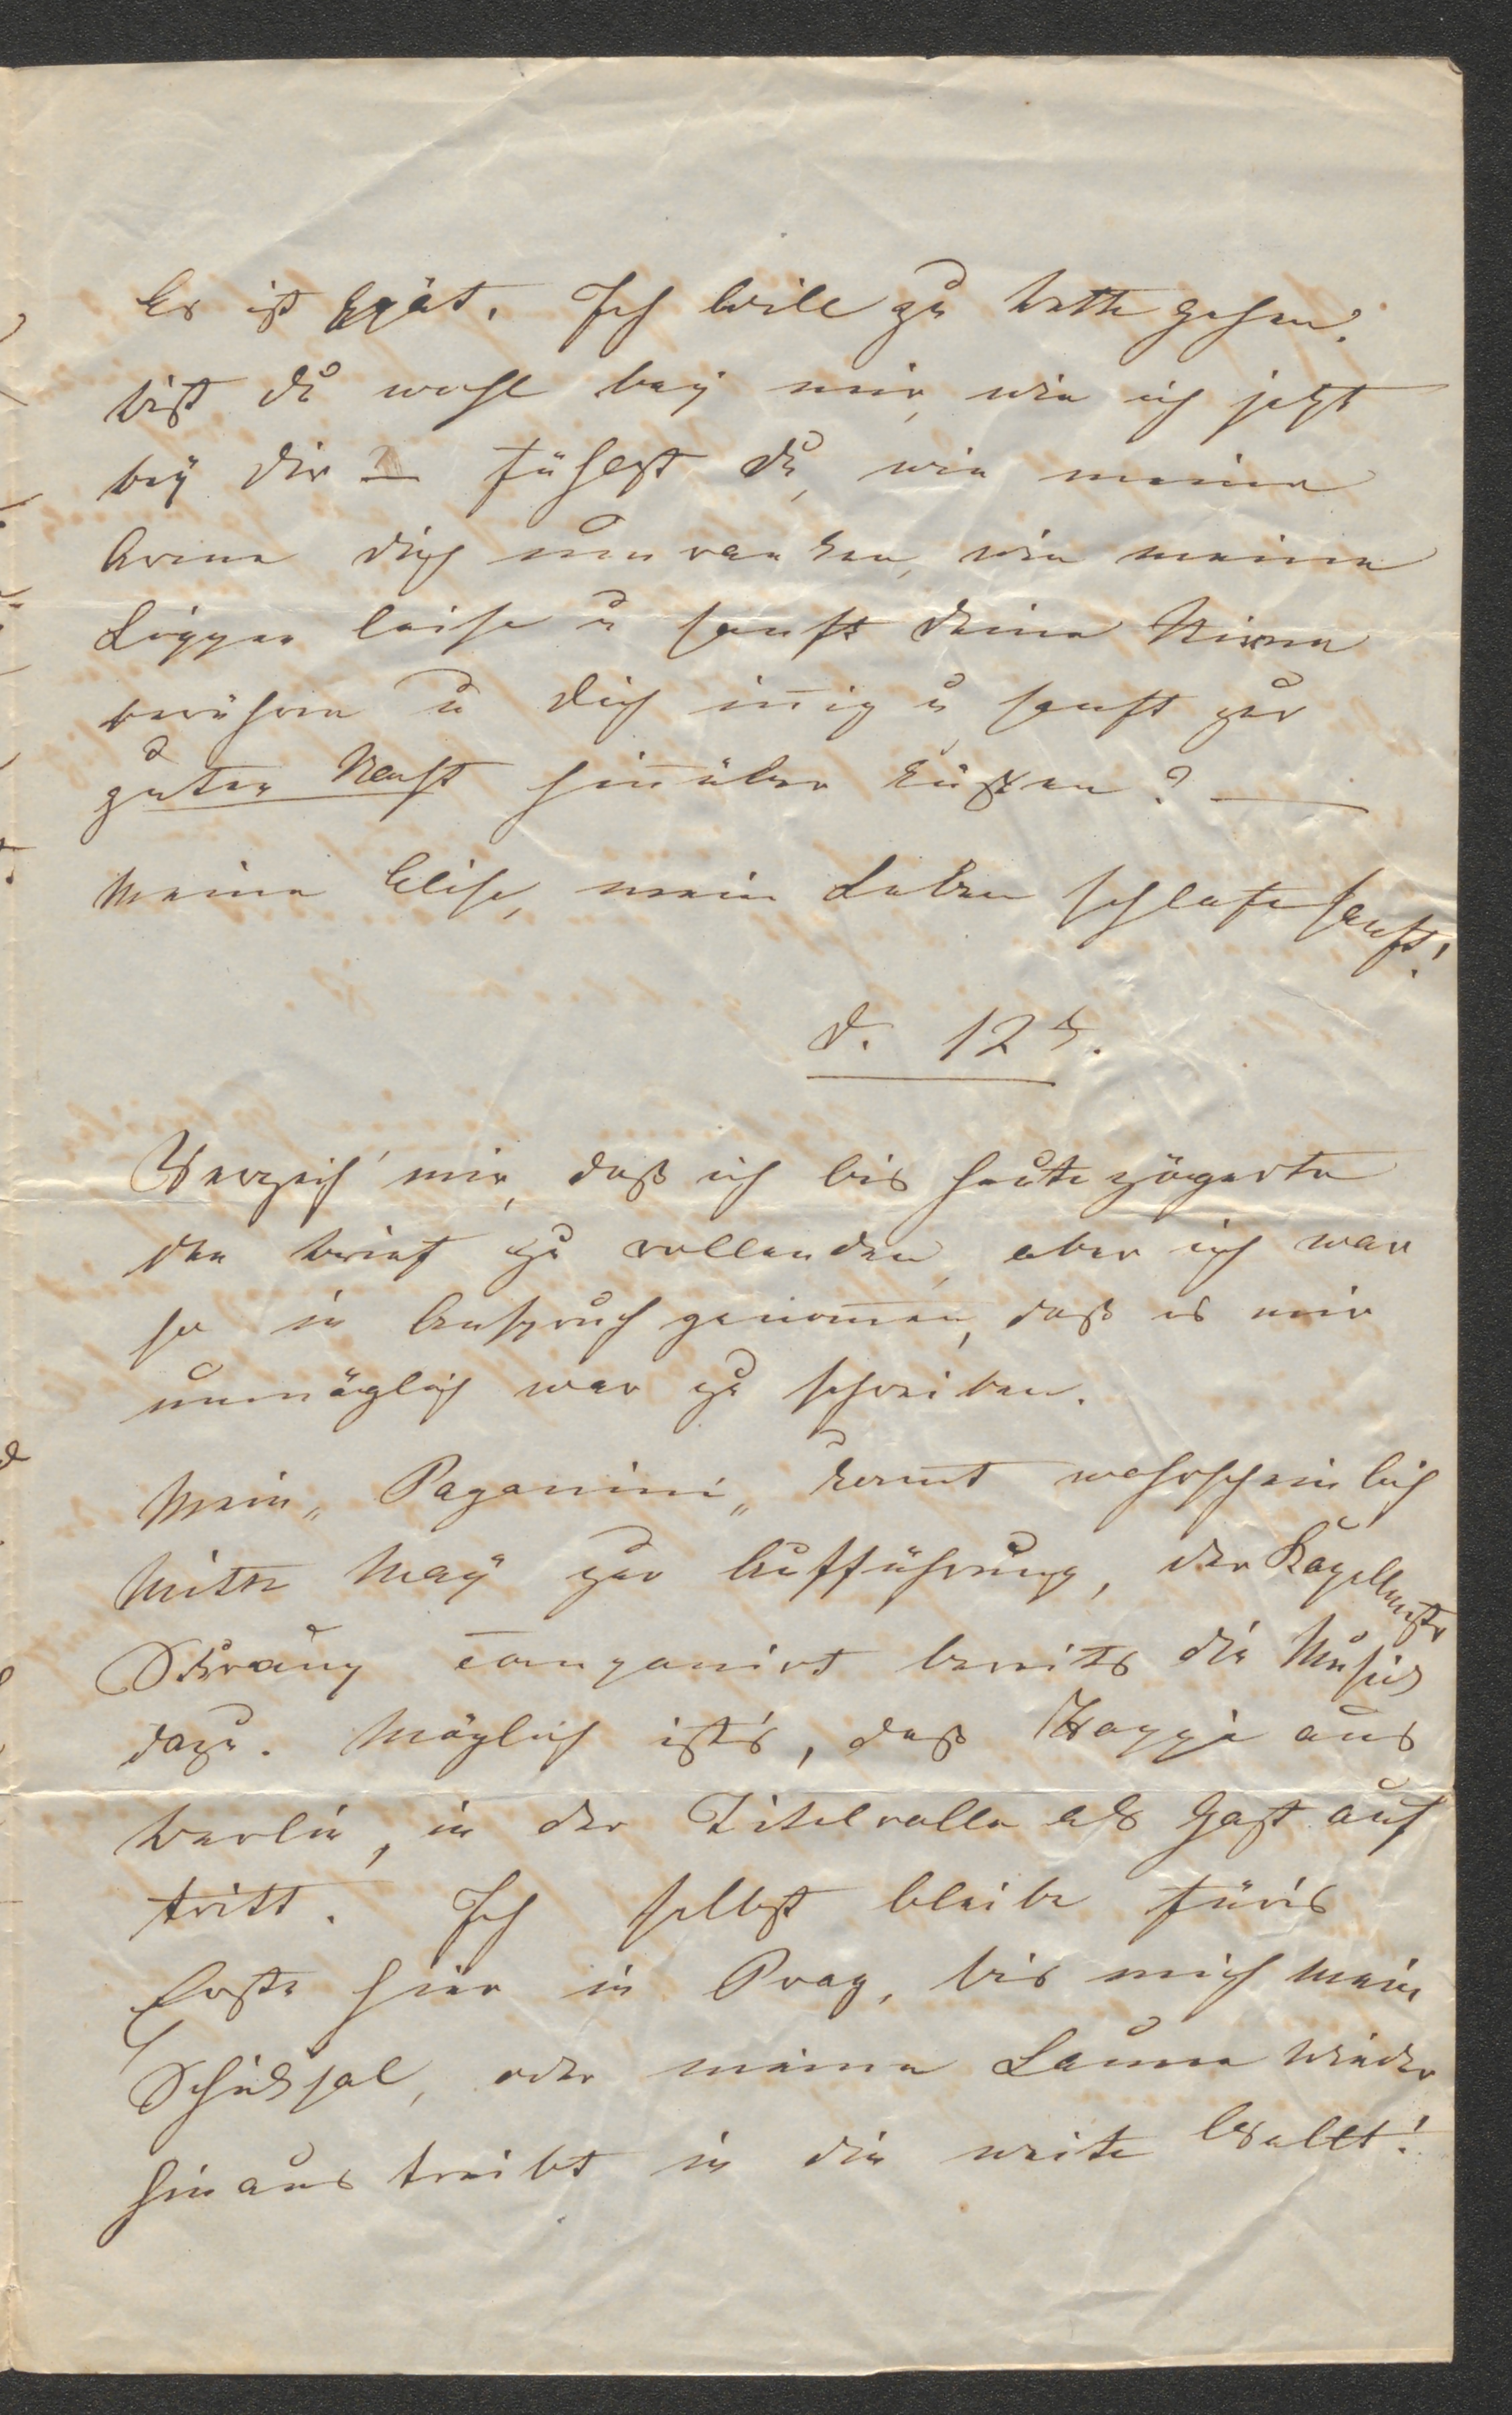 Es ist spät. Ich will zu Bette gehen.
bist du wohl bey mir, wie ich jetzt
bey dir? — Fühlst du, wie meine
Arme dich umranken, wie meine
Lippen leise u sanft deine Stirne
berühren u dich in̄ig u sanft zur
guten Nacht hin̄über küssen? —
Meine Elise, mein Leben schlafe sanft!
d. 12t.
Verzeih' mir, daß ich bis heute zögerte
den Brief zu vollenden, aber ich war
so in Anspruch genom̄en, daß es mir
unmöglich war zu schreiben.
Mein „Paganini„ kom̄t wahrscheinlich
Mitte May zur Aufführung, der Kapellmstr
Skraup componirt bereits die Musick
dazu. Möglich ist's, daß aus
Berlin, in der Titelrolle als Gast auf
tritt. Ich selbst bleibe für's
Erste hier in Prag, bis mich mein
Schicksal, oder meine Laune wieder
hinaus treibt in die weite Welt!